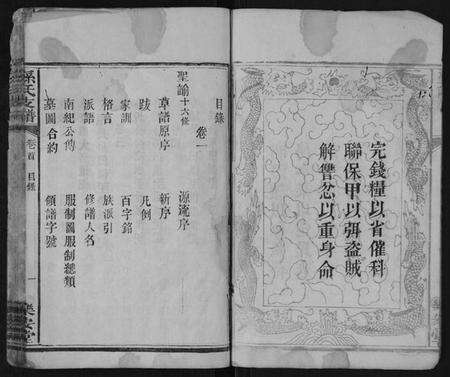 完錢糧以省催科
聯保甲以弭盜賊
解讐忿以重身命
目錄
卷一
聖諭十六條
草譜原序
源流序
跋
新序
家訓
凡例
格言
百字銘
派語
族派引
南紀公傳
修譜人名
墓圖合約
服制圖服制總類
領譜字號
孫氏支譜
卷首
目錄
一
樂安堂